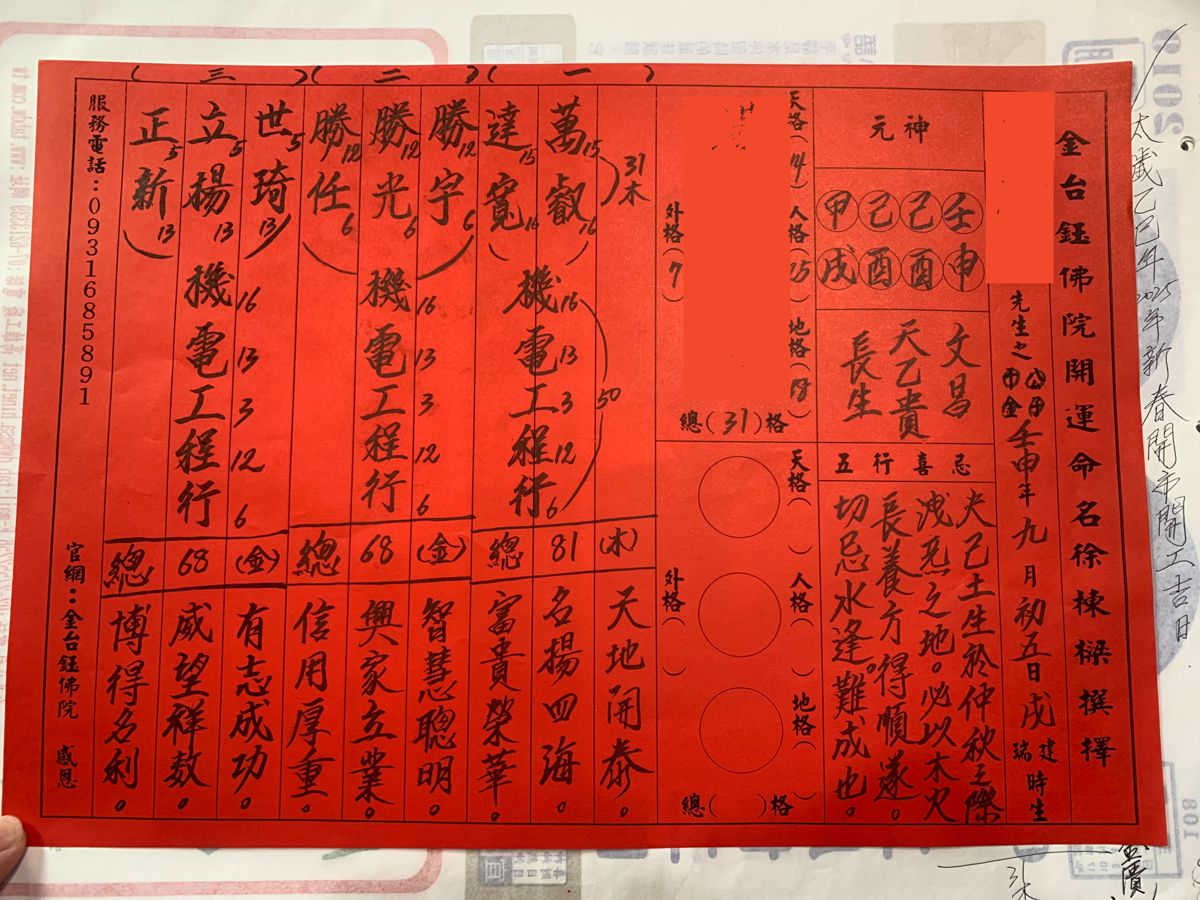 金台鈺佛院開運命名徐棟樑撰擇
先生之
命名
公司
壬申年九月初五日戌
瑞建
時生
元神
壬申
己酉
己酉
甲戌
文昌
天乙貴
長生
五行喜忌
夫己土生於仲秋之際
洩弱之地。必以木火
長養方得順遂。
切忌水逢難成也。
天格(14)
人格(25)
地格(18)
外格(7)
總(31)格
天格( )
人格( )
地格( )
外格( )
總( )格
(一)
31木
萬15叡16
達15寬16
機16電13工3程12行6
50
總81(木)
天地開泰。
名揚四海。
富貴榮華。
(二)
勝12宇6
勝12光6
勝12任6
機16電13工3程12行6
總68(金)
智慧聰明。
興家立業。
信用厚重。
(三)
世5琦13
立5揚13
正5新13
機16電13工3程12行6
總68(金)
有志成功。
威望祥數。
博得名利。
服務電話:0931685891
官網:金台鈺佛院 感恩
太歲乙巳年2025年新春開市開工吉日